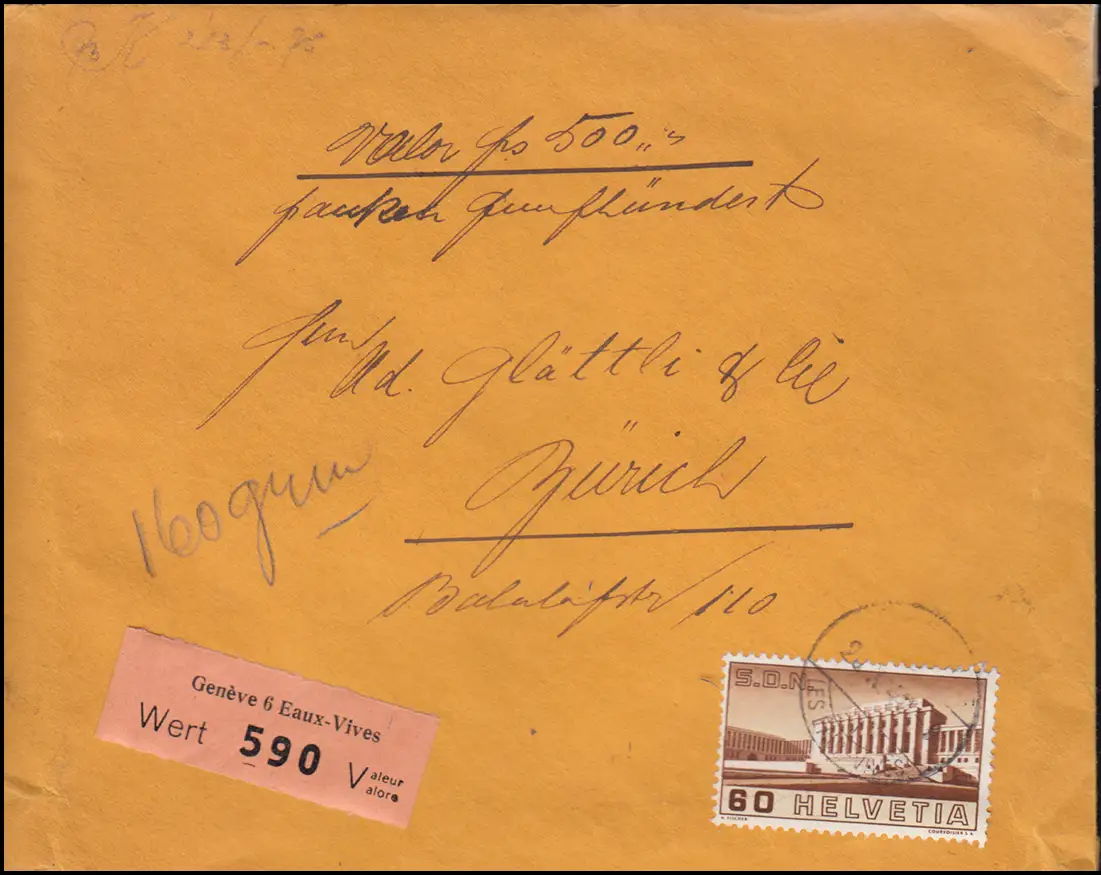 Valor frs 500.,"
franken fünfhündert
Herrn
Ad. Glättli & Cie
Zürich
160 gram
110
Genève 6 Eaux-Vives
Wert 590 Valeur
Valore
S.D.N.
60 HELVETIA
H. FISCHER COURVOISIER S.A.